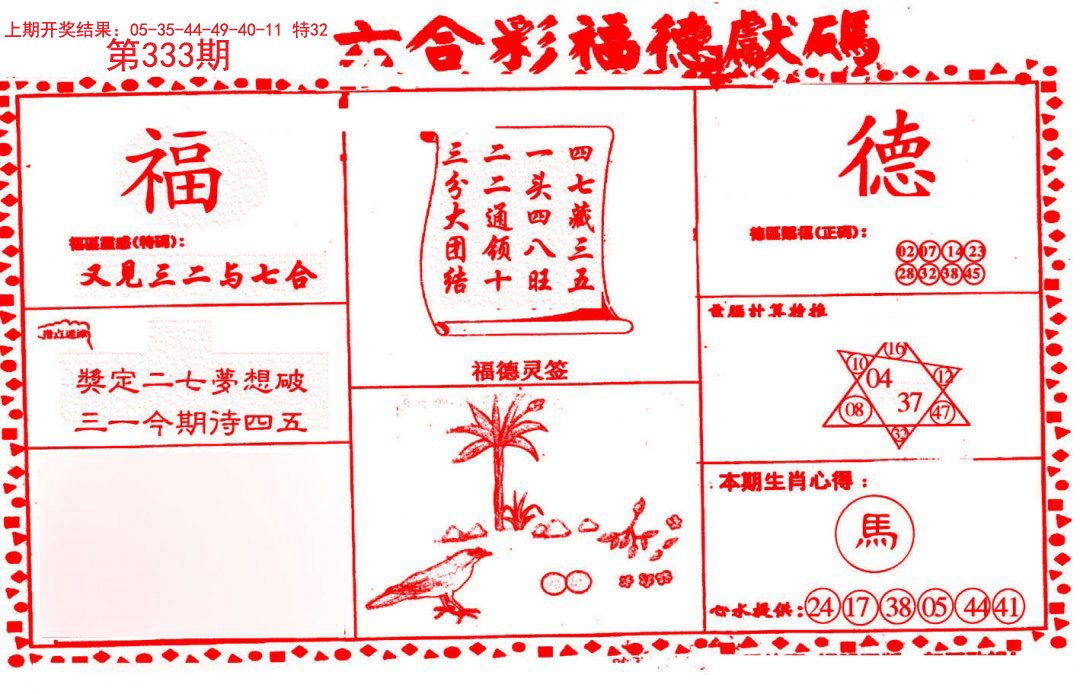 上期开奖结果：05-35-44-49-40-11 特32
第333期
六合彩福德獻碼
福
福區靈感(特碼)：
又見三二与七合
指点迷津
獎定二七夢想破
三一今期待四五
四七藏三五
一头四八旺
二二通领十
三分大团结
福德灵签
德
德區賜福(正碼)：
02 07 14 23
28 32 38 45
電腦計算给推
16
10 12
04
37
08 47
32
本期生肖心得：
馬
心水提供：24 17 38 05 44 41